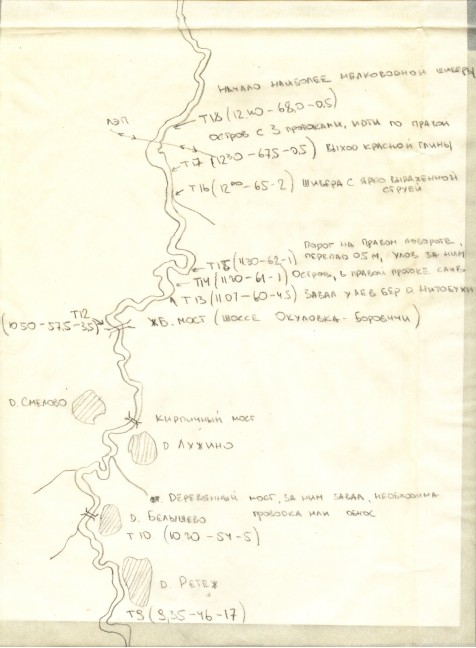 НАЧАЛО НАИБОЛЕЕ МЕЛКОВОДНОЙ ШИВЕРЫ
Т18 (12 40 - 68,0 - 0.5)
ЛЭП
ОСТРОВ С 3 ПРОТОКАМИ, ИДТИ ПО ПРАВОЙ
Т17 (12 30 - 67.5 - 0.5) ВЫХОД КРАСНОЙ ГЛИНЫ
Т16 (12 00 - 65 - 2) ШИВЕРА С ЯРКО ВЫРАЖЕННОЙ
СТРУЕЙ
ПОРОГ НА ПРАВОМ ПОВОРОТЕ,
Т15 (11 30 - 62 - 1) ПЕРЕПАД 0.5 М, УЛОВ ЗА НИМ
Т14 (11 20 - 61 - 1) ОСТРОВ, В ПРАВОЙ ПРОТОКЕ СЛИВ
Т13 (11 07 - 60 - 4.5) ЗАВАЛ У ЛЕВ БЕР О.
Т12
(10 50 - 57,5 - 3,5)
ЖБ. МОСТ (ШОССЕ ОКУЛОВКА - БОРОВИЧИ)
Д. СМЕЛОВО
КИРПИЧНЫЙ МОСТ
Д ЛУЖИНО
ДЕРЕВЯННЫЙ МОСТ, ЗА НИМ ЗАВАЛ, НЕОБХОДИМА
Д. БЕЛЫШЕВО ПРОВОДКА ИЛИ ОБНОС
Т 10 (10.20 - 54 - 5)
Д. РЕТЕЖ
Т9 (9,35 - 46 - 17)